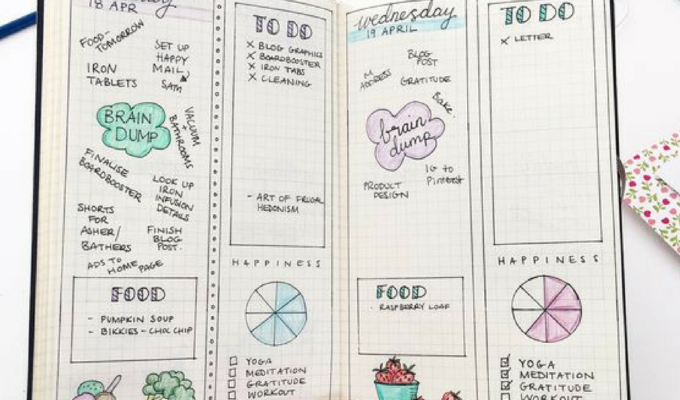 18 APR
FOOD-
TOMORROW
SET UP
HAPPY
MAIL
IRON
TABLETS
SATM
BRAIN
DUMP
VACUUM
+
BATHROOMS
FINALISE
BOARDBOOSTER
LOOK UP
IRON
INFUSION
DETAILS
SHORTS
FOR
ASHER/
BATHERS
FINISH
BLOG
POST.
ADS TO
HOMEPAGE
FOOD
- PUMPKIN SOUP
- BIKKIES - CHOC CHIP
TO DO
X BLOG GRAPHICS
X BOARDBOOSTER
X IRON TABS
X CLEANING
- ART OF FRUGAL
HEDONISM
HAPPINESS
YOGA
MEDITATION
GRATITUDE
WORKOUT
wednesday
19 APRIL
BLOG
POST
M
ADDRESS
GRATITUDE
Bake
brain
dump
IG to
Pinterest
PRODUCT
DESIGN
FOOD
- RASPBERRY LOAF
TO DO
X LETTER
HAPPINESS
YOGA
MEDITATION
GRATITUDE
WORKOUT